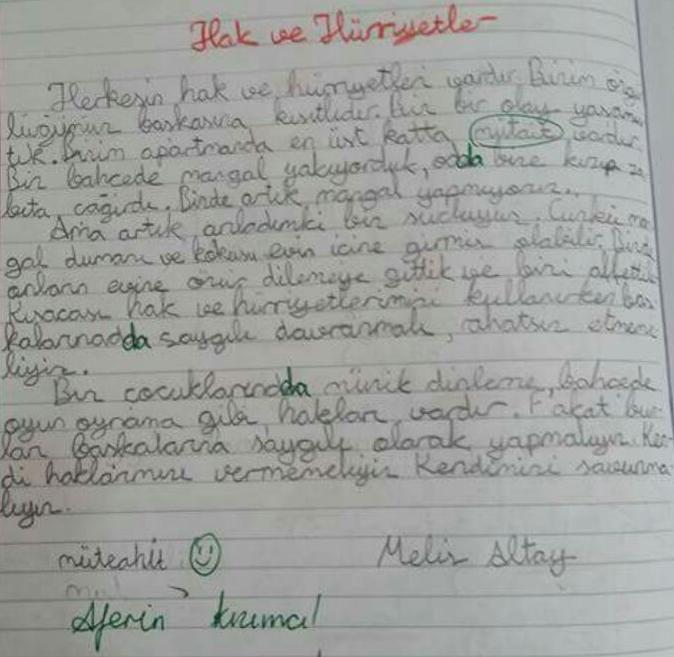 Hak ve Hürriyetle
Herkesin hak ve hürriyetleri vardır. Bizim özg
lüğümüz başkasına kısıtlıdır. Biz bir olay yaşamış
tık. Bizim apartmanda en üst katta mütait vardır.
Biz bahçede mangal yakıyorduk, odda bize kızıp za
bıta çağırdı. Bizde artık mangal yapmıyoruz.
Ama artık anladımki biz suçluyuz. Çünkü man
gal dumanı ve kokusu evin içine girmiş olabilir. Bizde
onların evine özür dilemeye gittik ve bizi affettiler
Kısacası hak ve hürriyetlerimizi kullanırken baş
kalarınadda saygılı davranmalı, rahatsız etmeme
liyiz.
Biz çocuklarındda müzik dinleme, bahçede
oyun oynama gibi hakları vardır. Fakat bun
ları başkalarına saygılı olarak yapmalıyız. Ken-
di haklarımızı vermemeliyiz Kendimizi savunma
lıyız.
müteahit Melis Altay
Aferin kızıma!